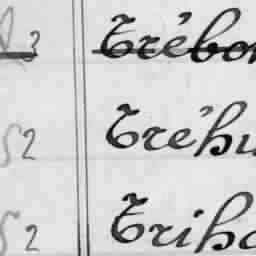 3 Trébon
S2 Tréhu
S2 Triho